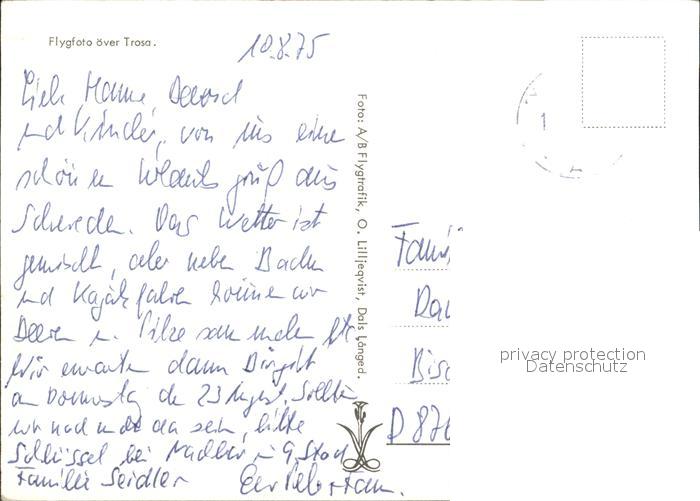 Flygfoto över Trosa.
10.8.75
Liebe Hanne,
und Kinder, von uns eine
schönen Urlaubsgruß aus
Schweden. Das Wetter ist
gemischt, aber neben Baden
und Kajakfahren können wir
Beeren u. Pilze sammeln
Wir erwarten dann Birgit
am Donnerstag de 23 August. Sollten
wir noch nicht da sein, bitte
Schlüssel bei 9. Stock
Familie Seidler
Foto: A/B Flygtrafik, O. Lilljeqvist, Dals Långed.
Fami
Da
Bisc
D 876
privacy protection
Datenschutz